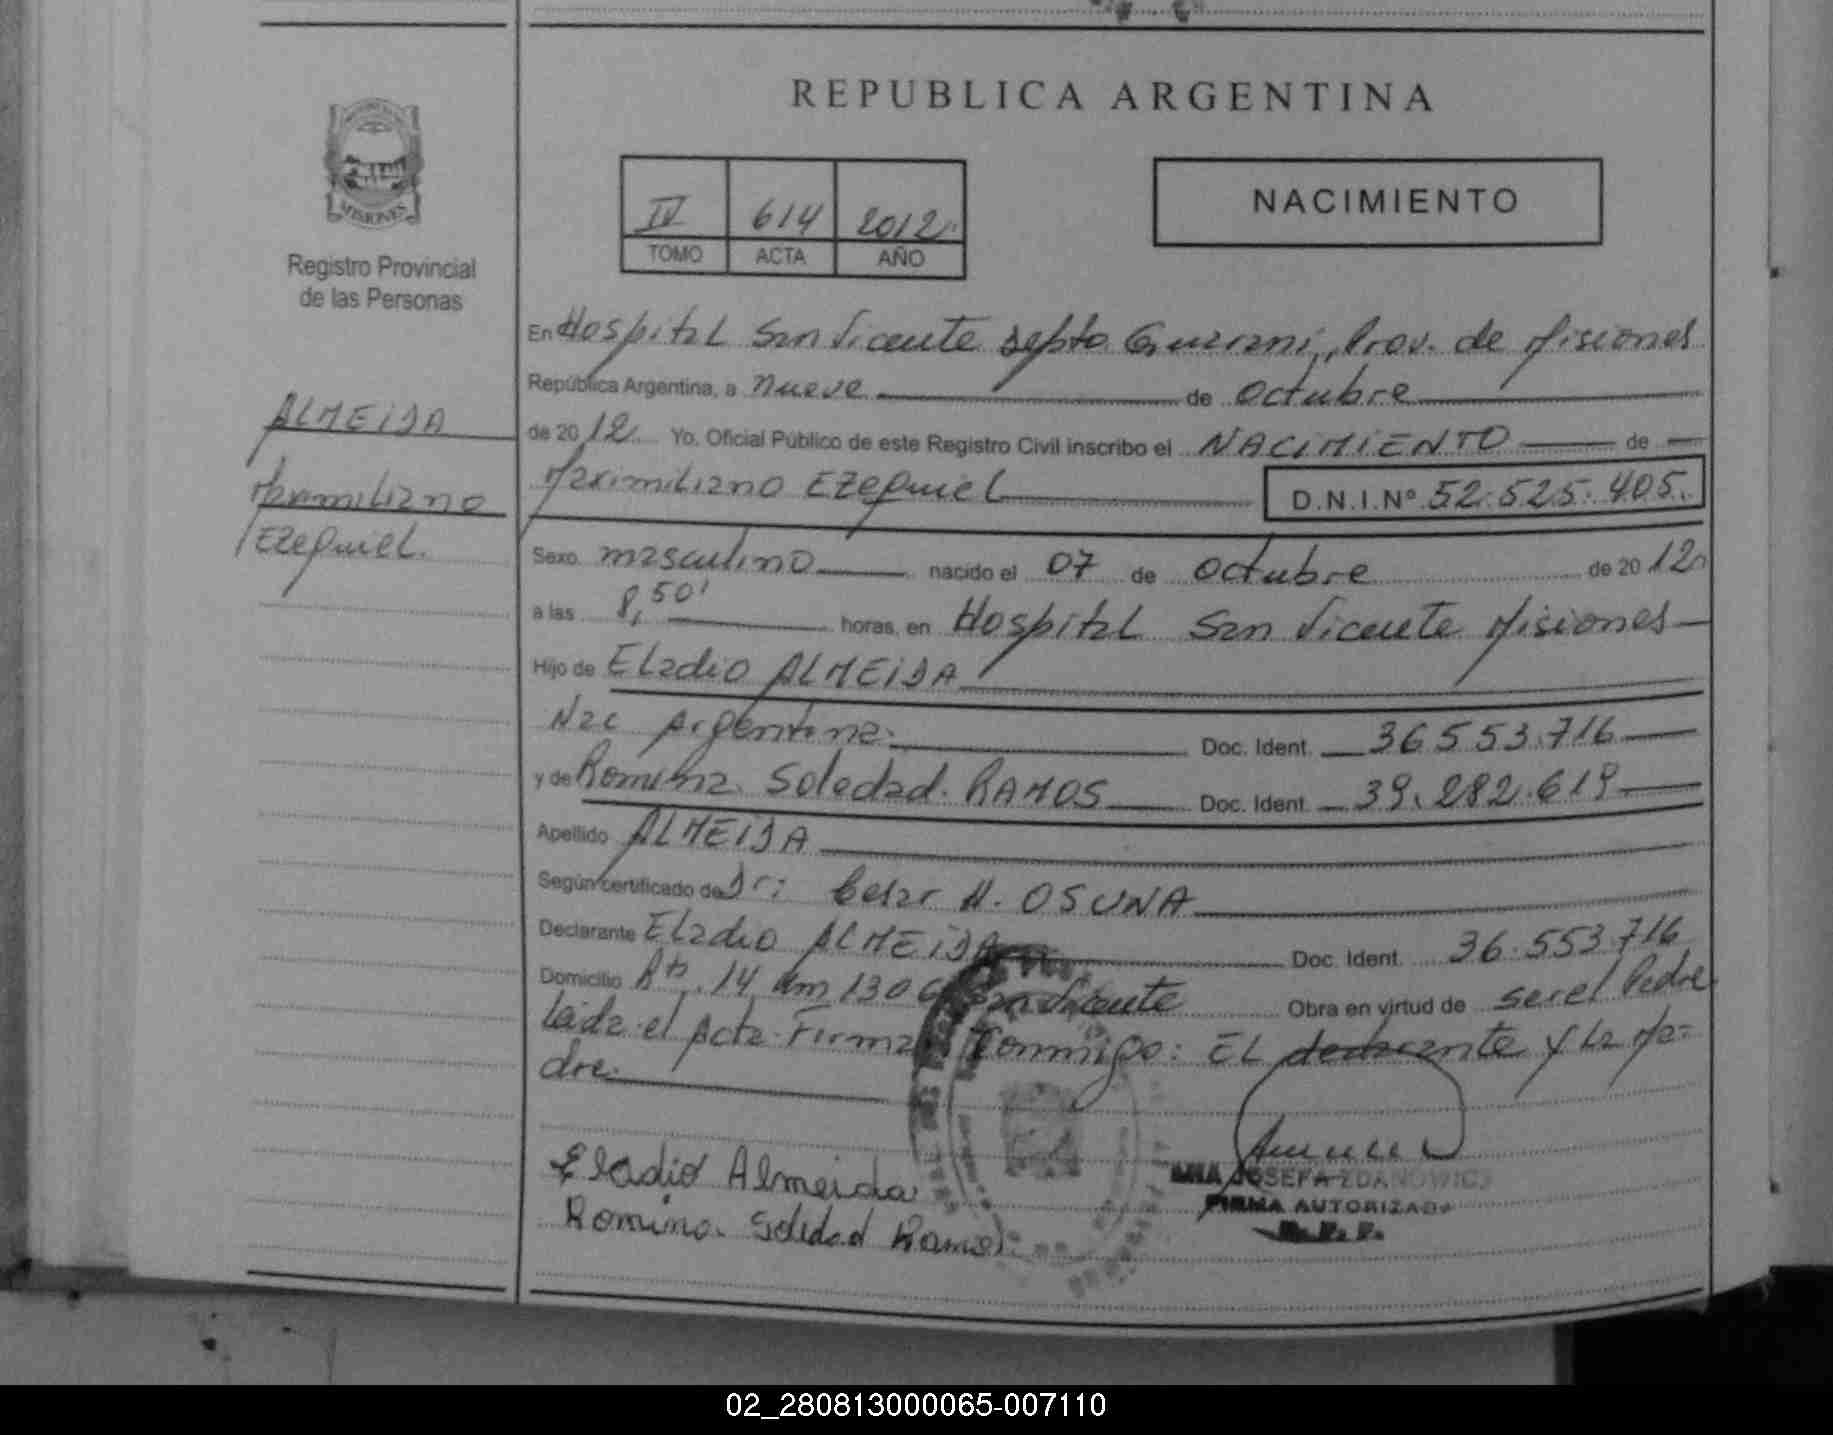 REPUBLICA ARGENTINA
MISIONES
Registro Provincial
de las Personas
IV 614 2012
TOMO ACTA AÑO
NACIMIENTO
ALMEIDA
Maximiliano
Ezequiel.
En Hospital San Vicente Depto Guarani, Prov. de Misiones
República Argentina, a nueve de octubre
de 2012 Yo, Oficial Público de este Registro Civil inscribo el NACIMIENTO de
Maximiliano Ezequiel D.N.I.Nº 52.525.405.
Sexo masculino nacido el 07 de octubre de 2012
a las 8,50' horas, en Hospital San Vicente Misiones
Hijo de Eladio ALMEIDA
Nac Argentina. Doc. Ident. 36.553.716
y de Romina Soledad RAMOS Doc. Ident. 39.282.619
Apellido ALMEIDA
Según certificado de Dr: Cesar H. OSUNA
Declarante Eladio ALMEIDA Doc. Ident. 36.553.716
Domicilio Rta. 14 Km 1306 San Vicente Obra en virtud de ser el Padre
Leida el Acta Firman Conmigo: El declarante y la Ma=
dre.
Eladio Almeida
Romina Soledad Ramos
ANA JOSEFA ZDANOWICZ
FIRMA AUTORIZADA
R.P.P.
02_280813000065-007110